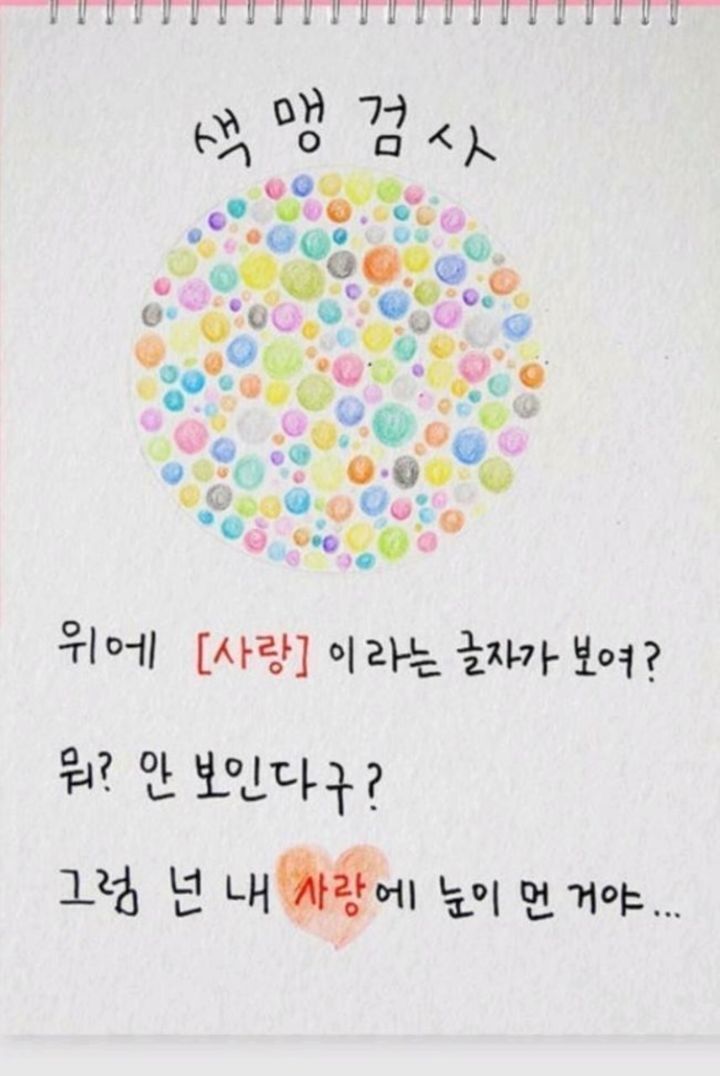 색맹검사
위에 [사랑]이라는 글자가 보여?
뭐? 안 보인다구?
그럼 넌 내 사랑에 눈이 먼 거야...